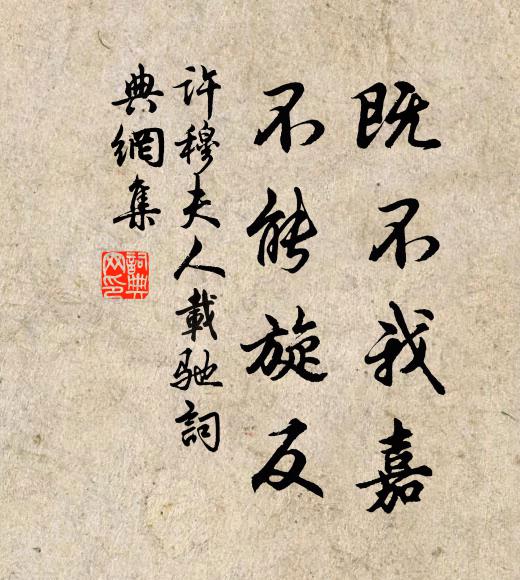 既不我嘉
不能旋反
許穆夫人載馳詞
典網集
詞典网印